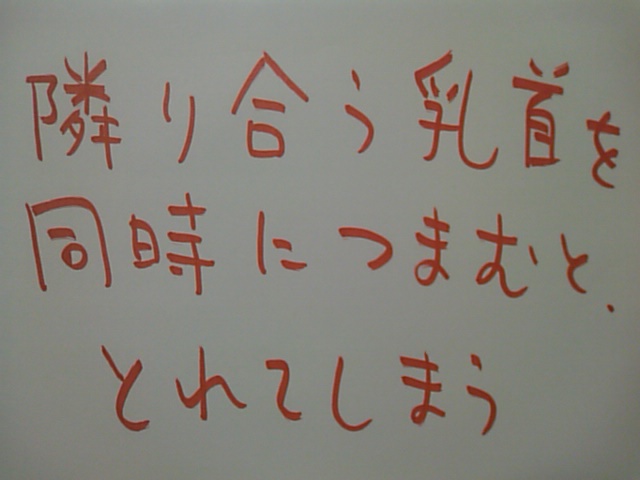 隣り合う乳首を
同時につまむと、
とれてしまう